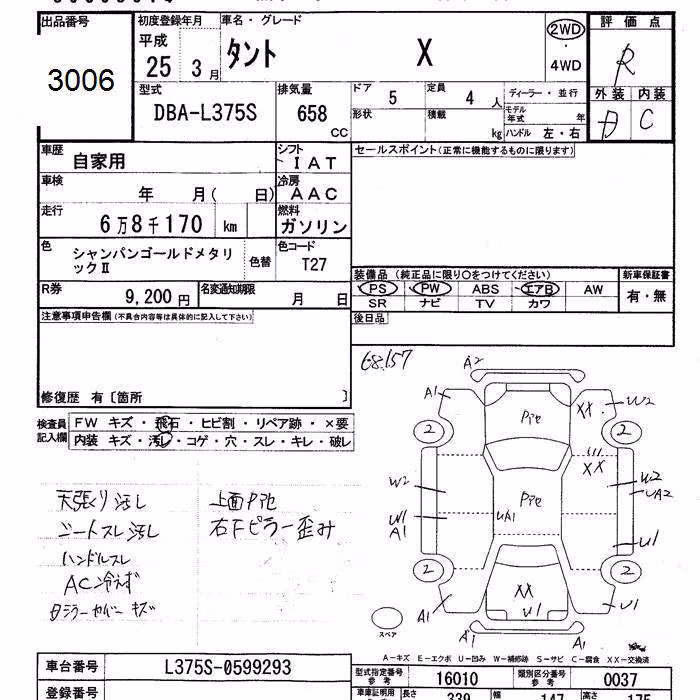 出品番号 初度登録年月 車名・グレード 評価点
3006 平成 25 3月 タント X 2WD ・ 4WD R
型式 排気量 ドア 定員 ディーラー・並行 外装 内装
DBA-L375S 658 CC 5 4人 C
形状 積載 kg モデル年式 年 ハンドル 左・右
車歴 自家用 シフト IAT セールスポイント(正常に機能するものに限ります)
車検 年 月( 日) 冷房 AAC
走行 6万8千170 km 燃料 ガソリン
色 シャンパンゴールドメタリックⅡ 色替 色コード T27
装備品 (純正品に限り○をつけてください) 新車保証書
R券 9,200円 名変通知期限 月 日 PS PW ABS エアB AW 有・無
SR ナビ TV カワ
注意事項申告欄 (不具合内容等は具体的に記入して下さい) 後日品
68,157
修復歴 有〔箇所 〕
検査員記入欄 FW キズ・飛石・ヒビ割・リペア跡・×要
内装 キズ・汚レ・コゲ・穴・スレ・キレ・破レ
天張り汚し 上面Pie
シートスレ汚し 右Fピラー歪み
ハンドルスレ
AC冷えず
A2
A1 Pie XX W2
2 2
XX
W2 Pie W2
UA2
W1 UA1
A1 U1
2 2
XX
A1 U1 U1
スペア A1 A1
A-キズ E-エクボ U-凹み W-補修跡 S-サビ C-腐食 XX-交換済
車台番号 L375S-0599293 型式指定番号 参考 16010 類別区分番号 参考 0037
登録番号 車庫証明用 長さ 339 幅 147 高さ 175